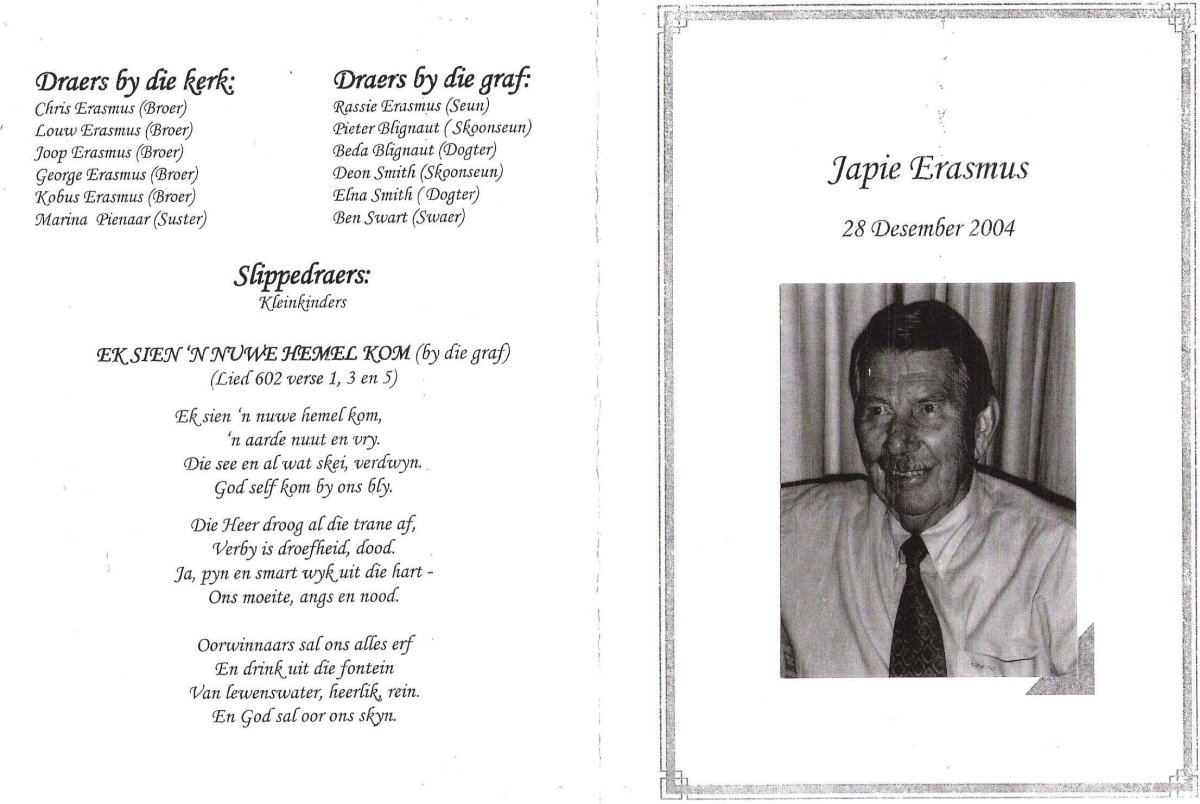 Draers by die kerk:
Chris Erasmus (Broer)
Louw Erasmus (Broer)
Joop Erasmus (Broer)
George Erasmus (Broer)
Kobus Erasmus (Broer)
Marina Pienaar (Suster)
Draers by die graf:
Rassie Erasmus (Seun)
Pieter Blignaut ( Skoonseun)
Beda Blignaut (Dogter)
Deon Smith (Skoonseun)
Elna Smith ( Dogter)
Ben Swart (Swaer)
Slippedraers:
Kleinkinders
EK SIEN ‘N NUWE HEMEL KOM (by die graf)
(Lied 602 verse 1, 3 en 5)
Ek sien ‘n nuwe hemel kom,
‘n aarde nuut en vry.
Die see en al wat skei, verdwyn.
God self kom by ons bly.
Die Heer droog al die trane af,
Verby is droefheid, dood.
Ja, pyn en smart wyk uit die hart -
Ons moeite, angs en nood.
Oorwinnaars sal ons alles erf
En drink uit die fontein
Van lewenswater, heerlik, rein.
En God sal oor ons skyn.
Japie Erasmus
28 Desember 2004